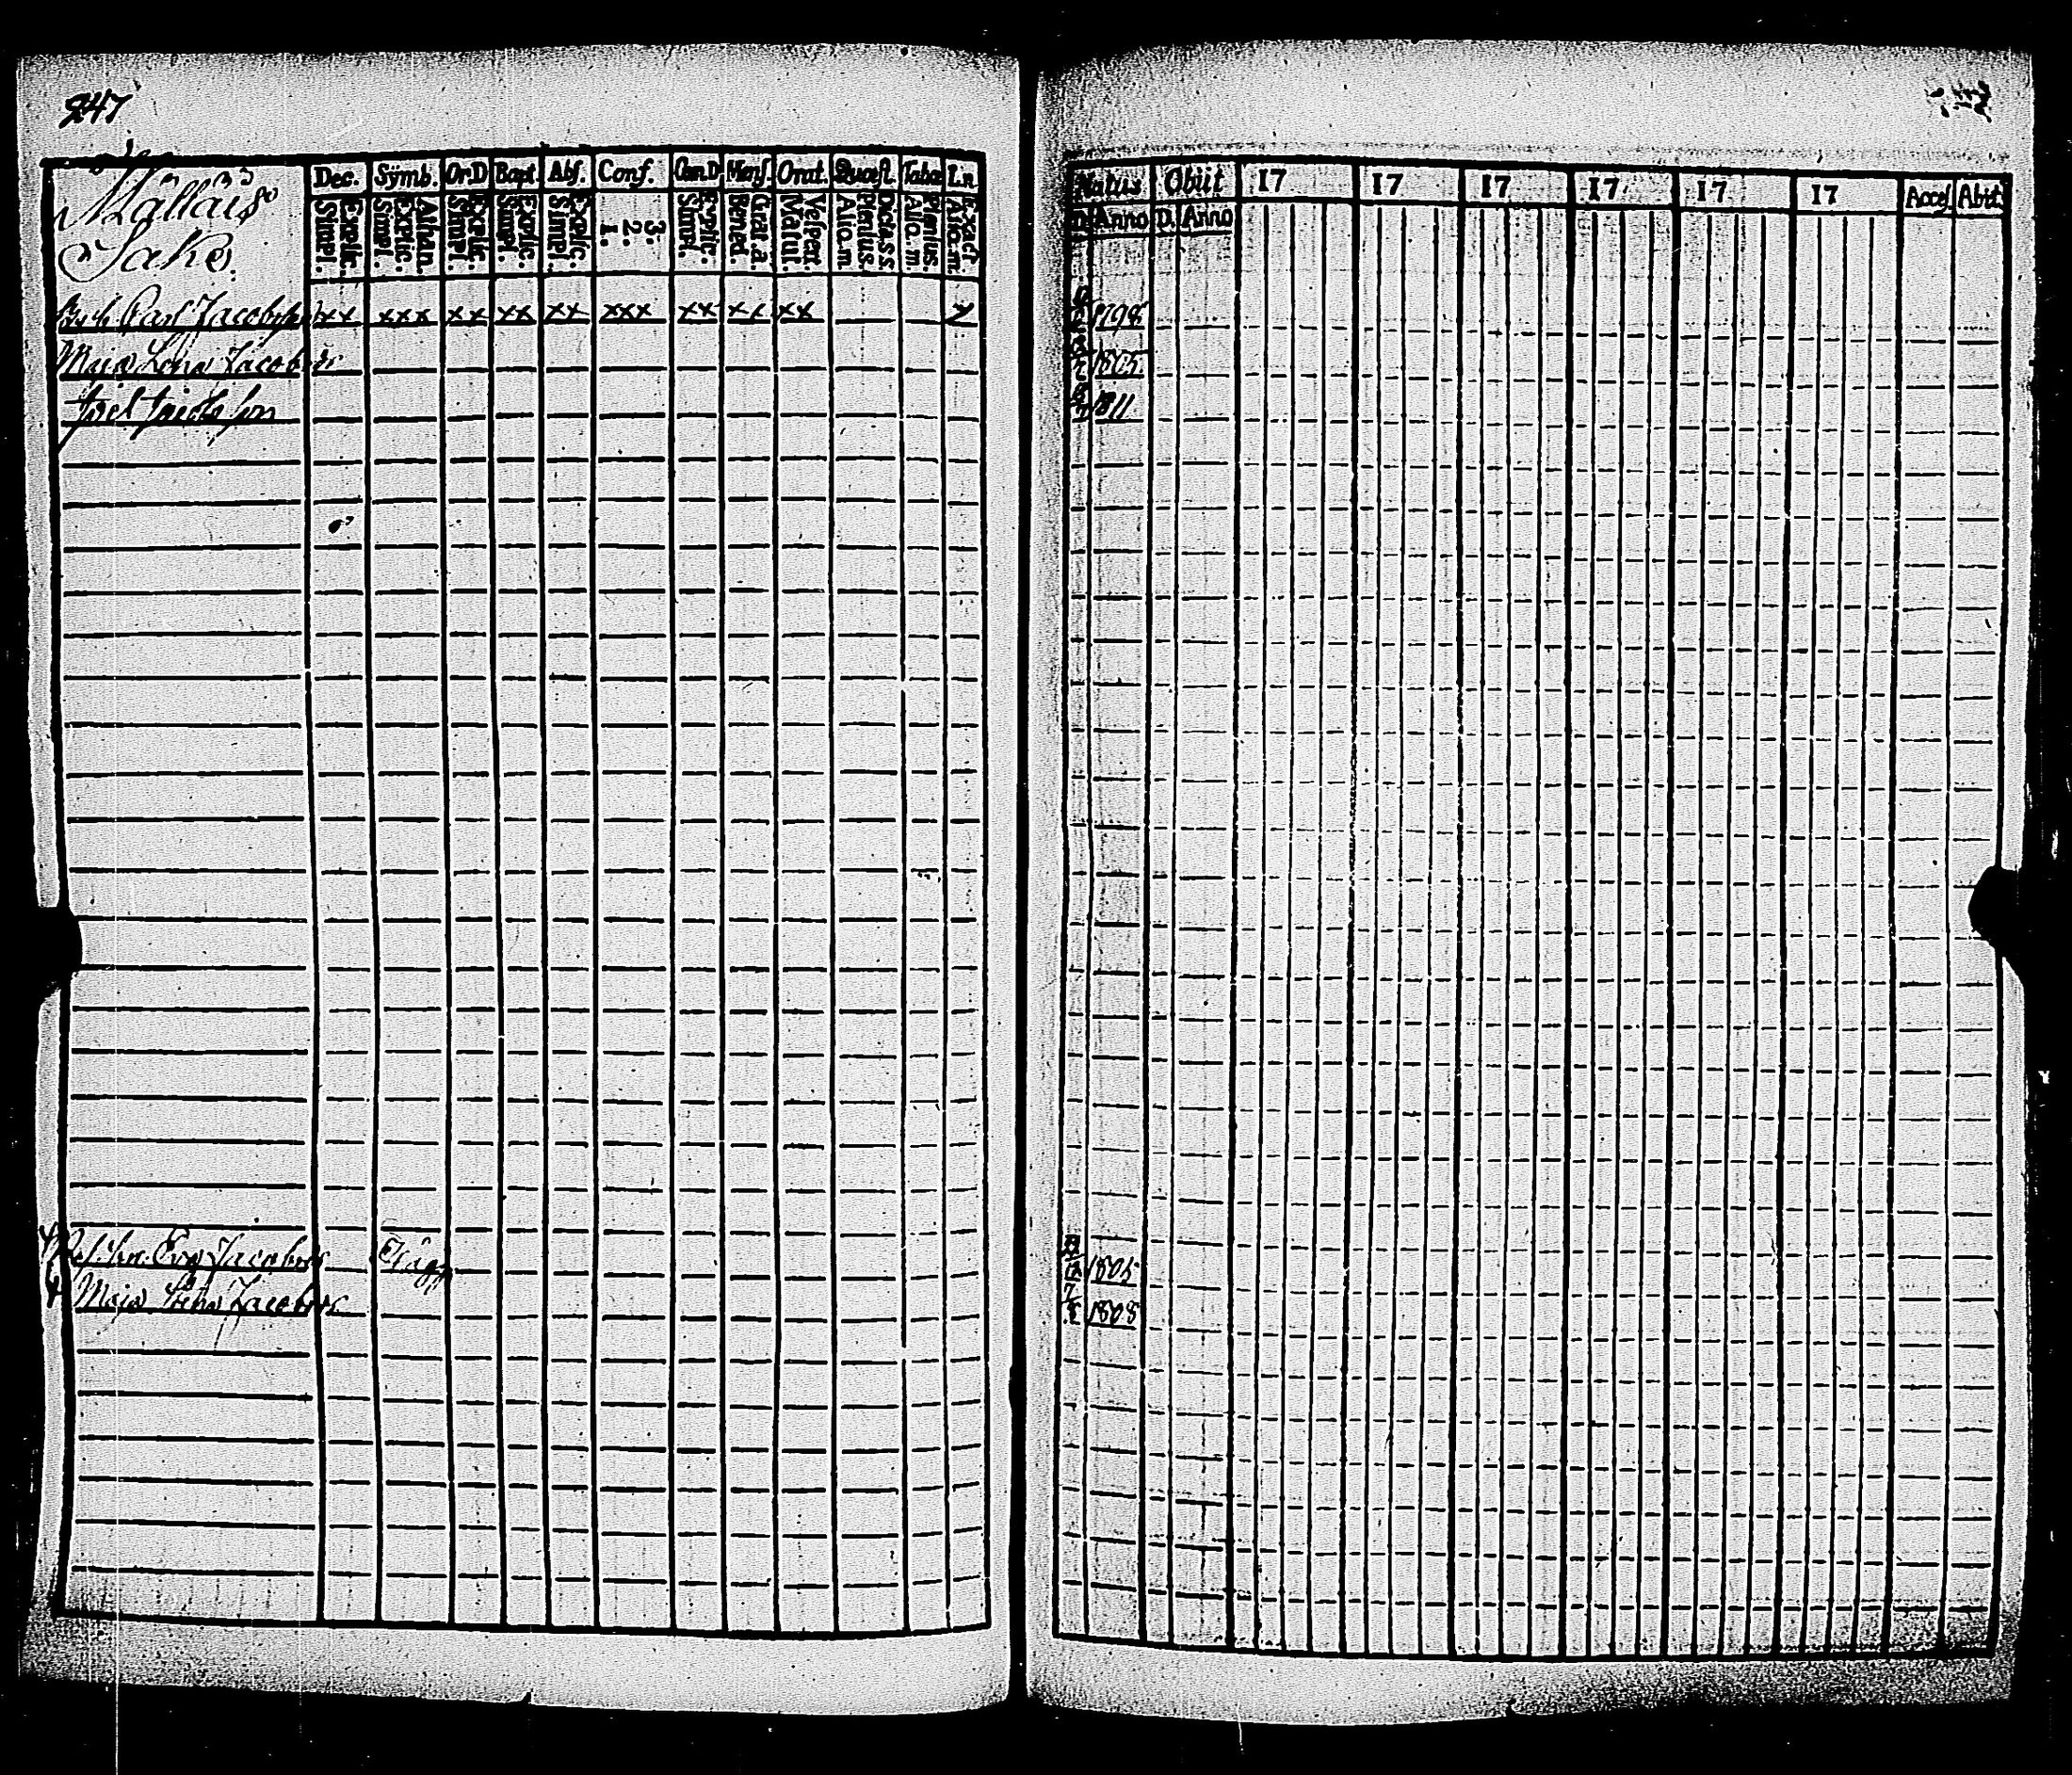 247
Mållais
Jako.
Dec. Symb. Or.D Bapt. Abs. Conf. Cœn.D Mens. Orat. Quæst. Taba L.n
Explic. Simpl. Athan. Explic. Simpl. Explic. Simpl. Explic. Simpl. Explic. Simpl. 3. 2. 1. Explic. Simpl. Grat. a. Bened. Vesper. Matut. Dictass. Plenius. Aliq. m. Plenius. Aliq. m Exact. Aliq. m.
Carl Jacobsson xx xxx xx xx xx xxx xx xx xx x
Maja Lena Jacobsdr
Jacobsson
Eva Jacobsdr
Maja Lena Jacobsdr
Natus Obiit 17 17 17 17 17 17 Acces. Abit.
D. Anno D. Anno
1798
1805
1811
1805
1808